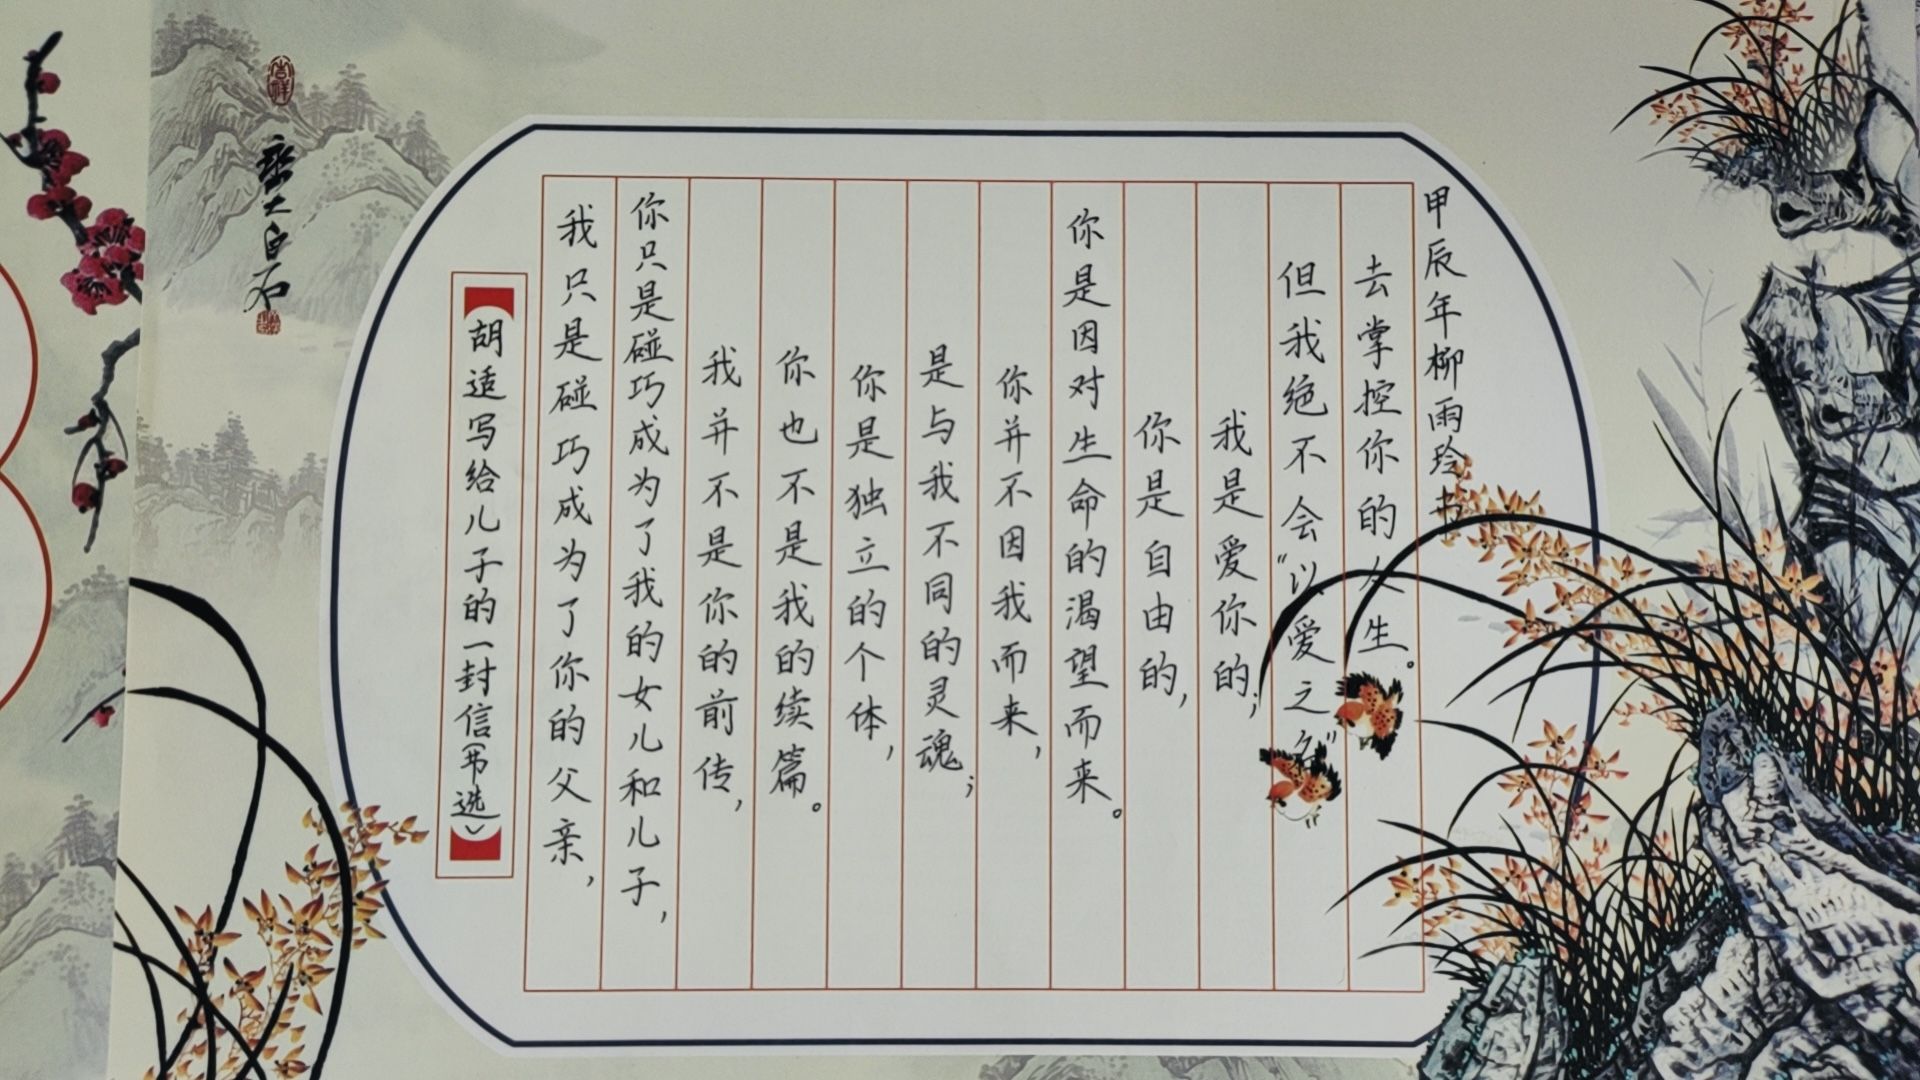 吉祥
白石
【胡适写给儿子的一封信(节选)】
我只是碰巧成为了你的父亲,
你只是碰巧成为了我的女儿和儿子,
我并不是你的前传,
你也不是我的续篇。
你是独立的个体,
是与我不同的灵魂;
你并不因我而来,
你是因对生命的渴望而来。
你是自由的,
我是爱你的;
但我绝不会“以爱之名”
去掌控你的人生。
甲辰年柳雨玲书